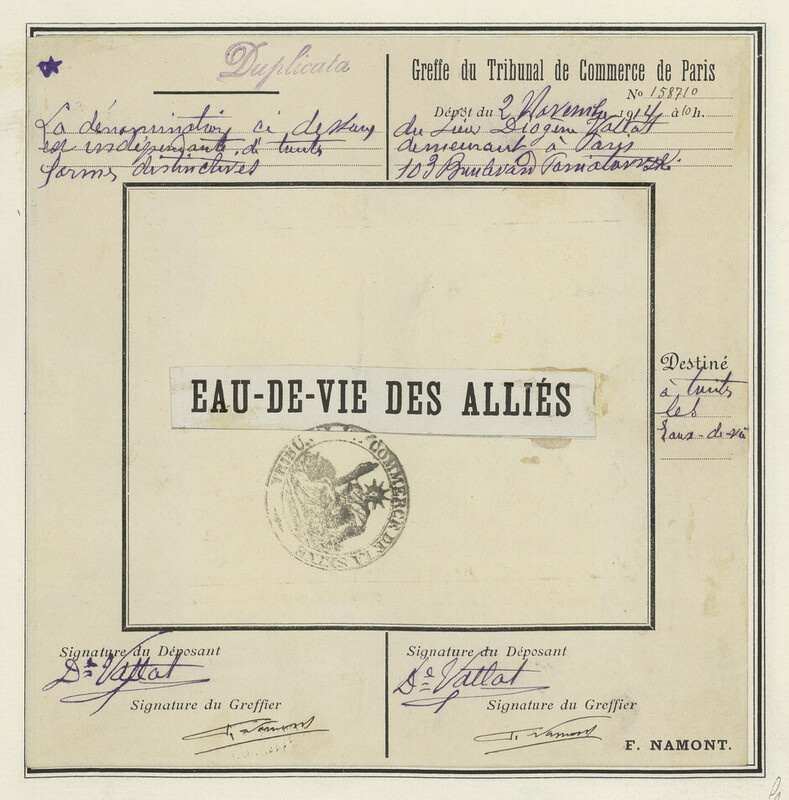 Duplicata
La dénomination ci dessus
est indépendante de toutes
formes distinctives
Greffe du Tribunal de Commerce de Paris
No 158710
Dépôt du 2 Novembre 1914 à 10 h.
du Sieur Diogène Vallat
demeurant à Paris
103 Boulevard
EAU-DE-VIE DES ALLIÉS
TRIBUNAL DE COMMERCE DE LA SEINE
Destiné
à toutes
les
Eaux-de-vie
Signature du Déposant
De Vallat
Signature du Greffier
F. Namont
Signature du Déposant
De Vallat
Signature du Greffier
F. Namont
F. NAMONT.